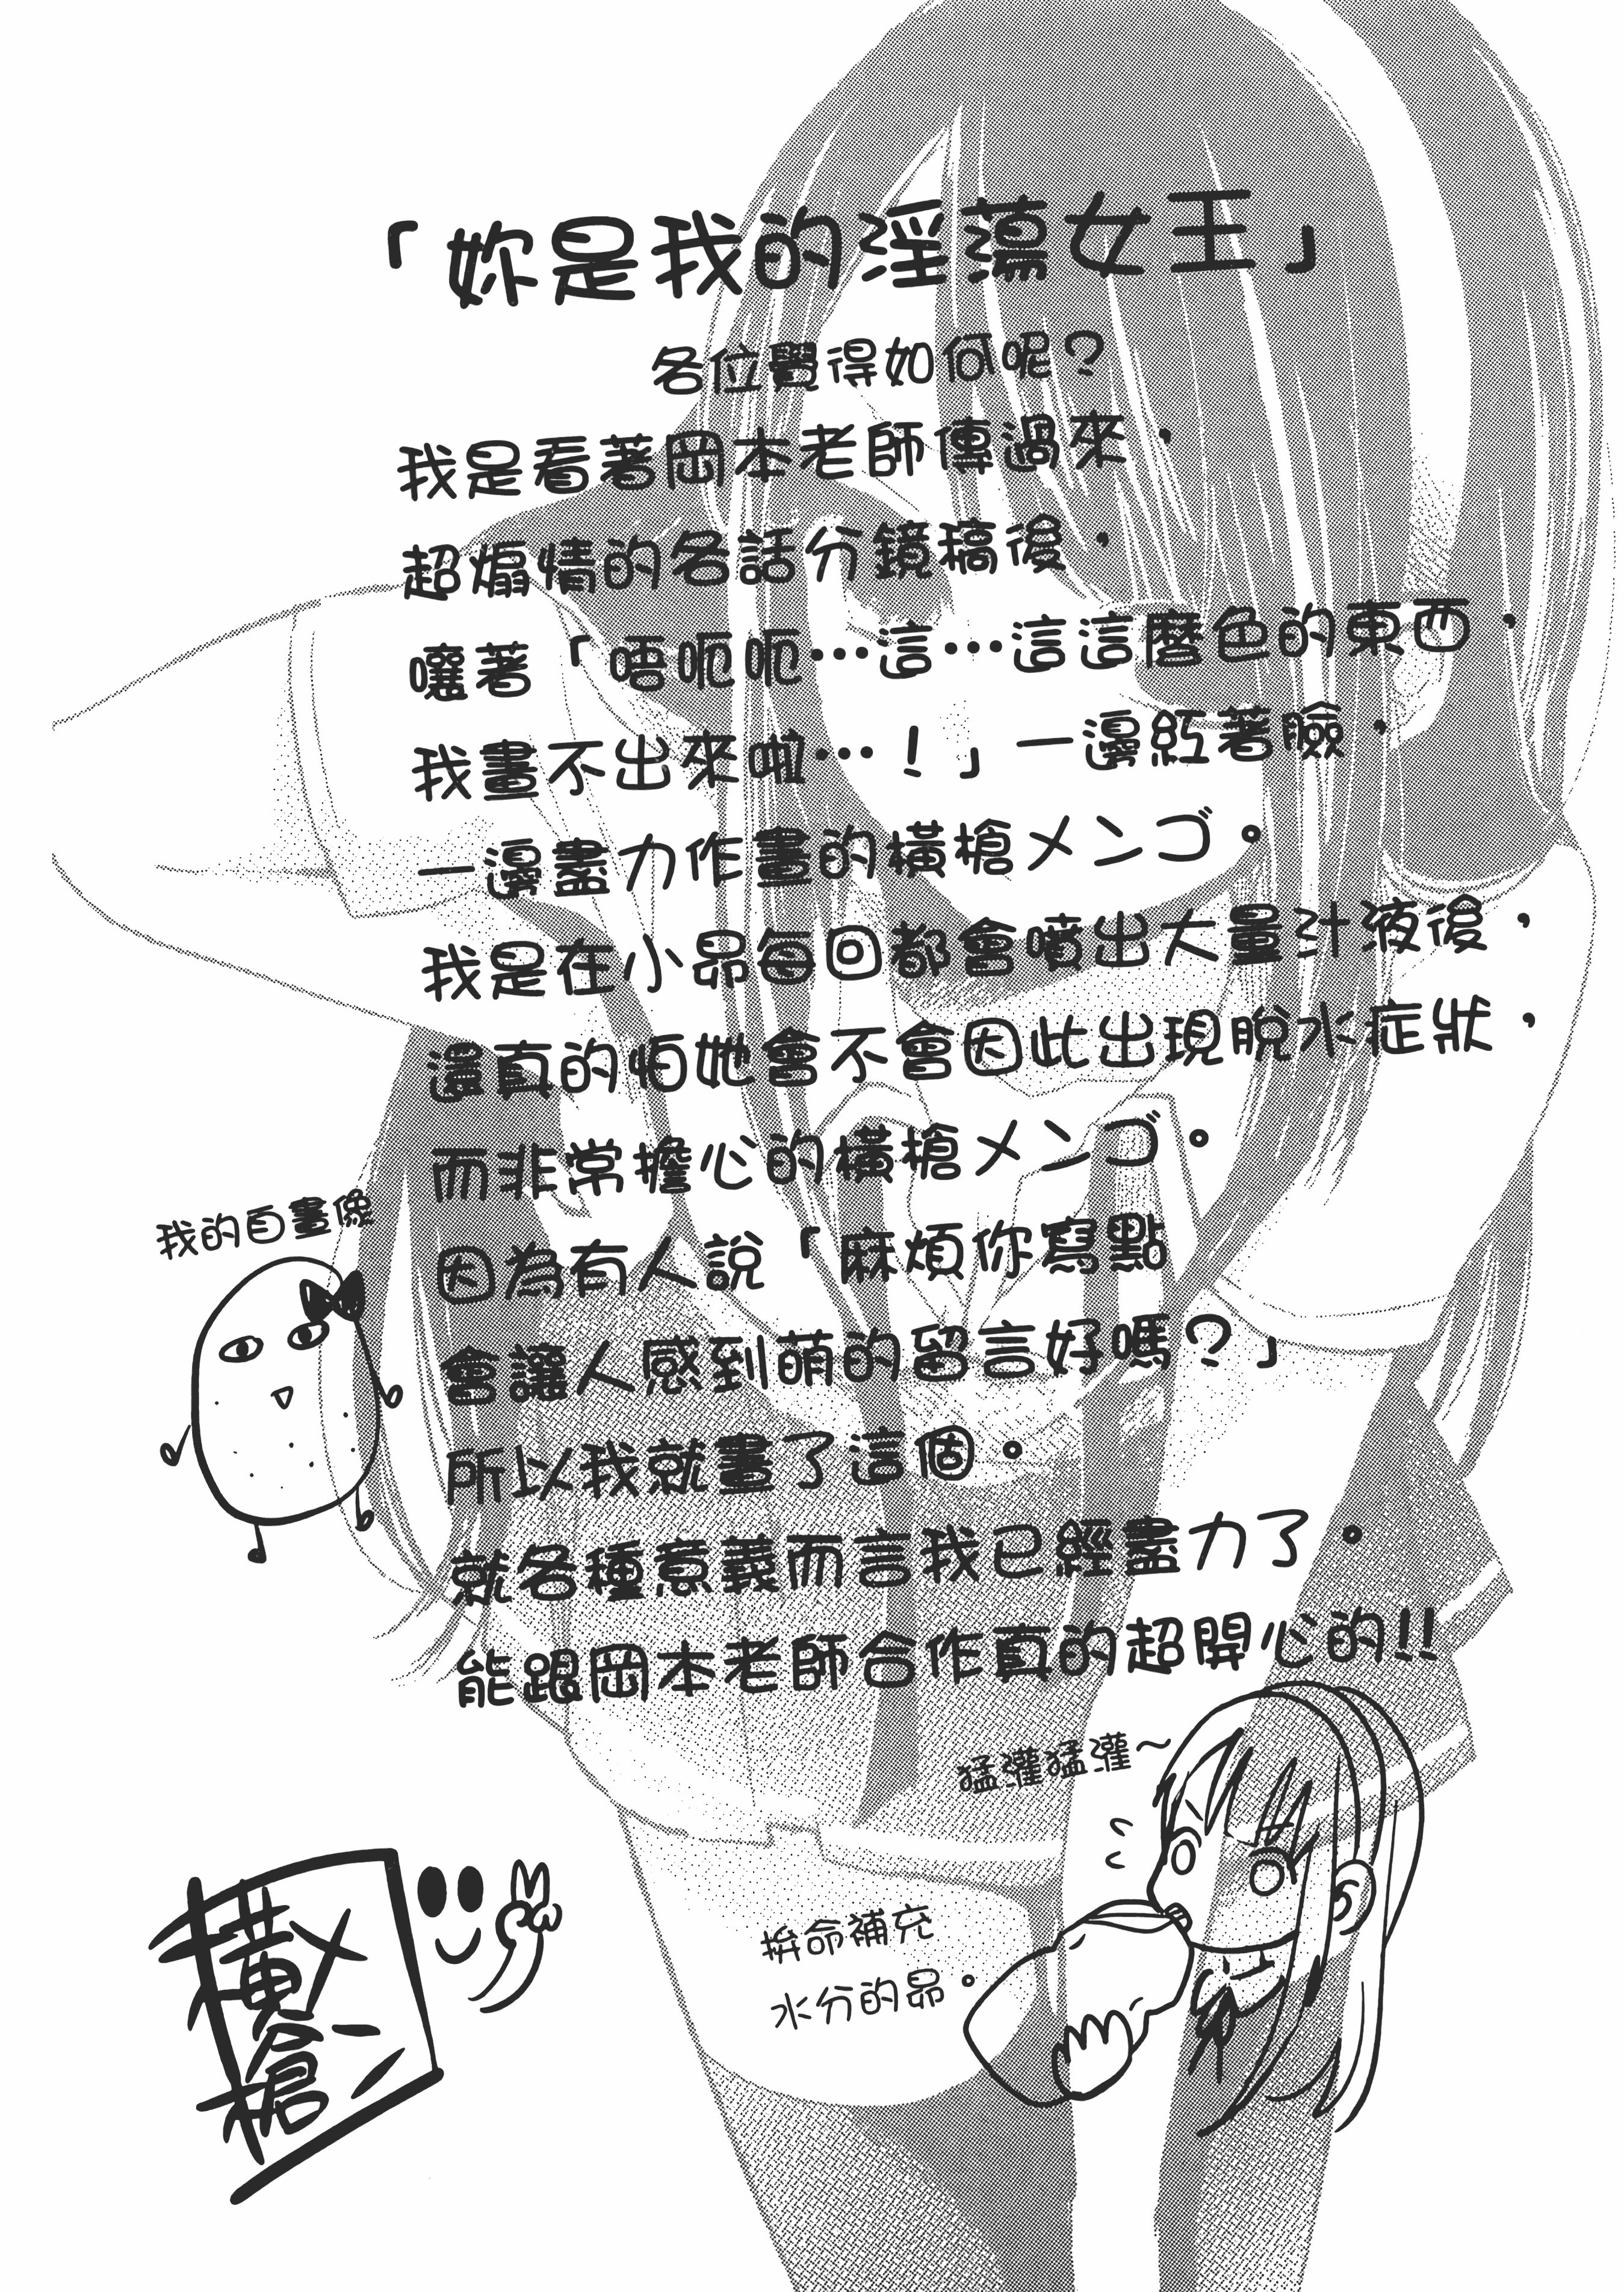 「妳是我的淫蕩女王」
各位覺得如何呢？
我是看著岡本老師傳過來，
超煽情的各話分鏡稿後，
嚷著「唔呃呃…這…這這麼色的東西，
我畫不出來啦…！」一邊紅著臉，
一邊盡力作畫的橫槍メンゴ。
我是在小昴每回都會噴出大量汁液後，
還真的怕她會不會因此出現脫水症狀，
而非常擔心的橫槍メンゴ。
因為有人說「麻煩你寫點
會讓人感到萌的留言好嗎？」
所以我就畫了這個。
就各種意義而言我已經盡力了。
能跟岡本老師合作真的超開心的!!
我的自畫像
猛灌猛灌～
拚命補充
水分的昴。
横槍
メンゴ